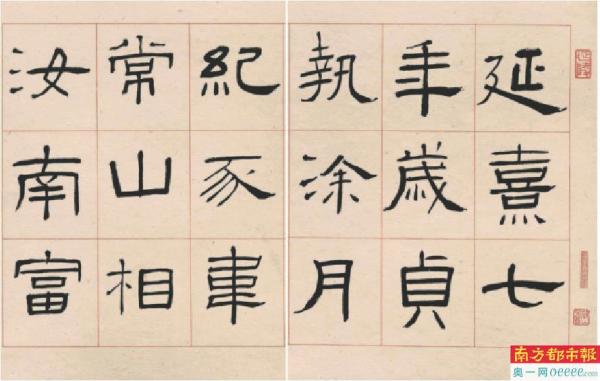 延熹七
年歲貞
執涂月
紀豕韋
常山相
汝南富
南方都市報
奥一网oeeee.com